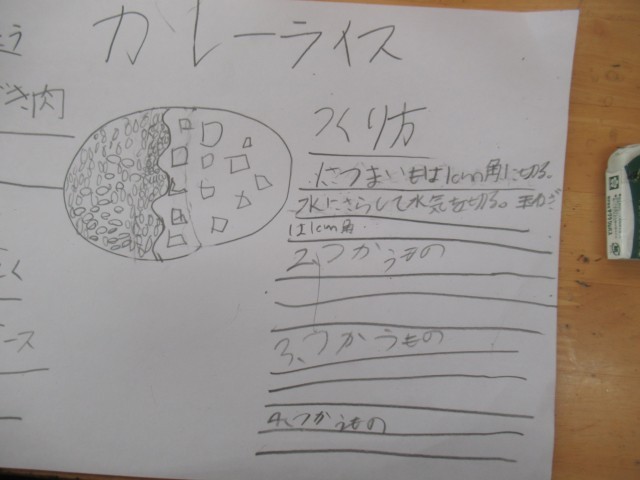 カレーライス
う
き肉
つくり方
1.さつまいもは1cm角に切る。
水にさらして水気を切る。玉ねぎ
は1cm角
2.つかうもの
3.つかうもの
4.つかうもの
く
ース